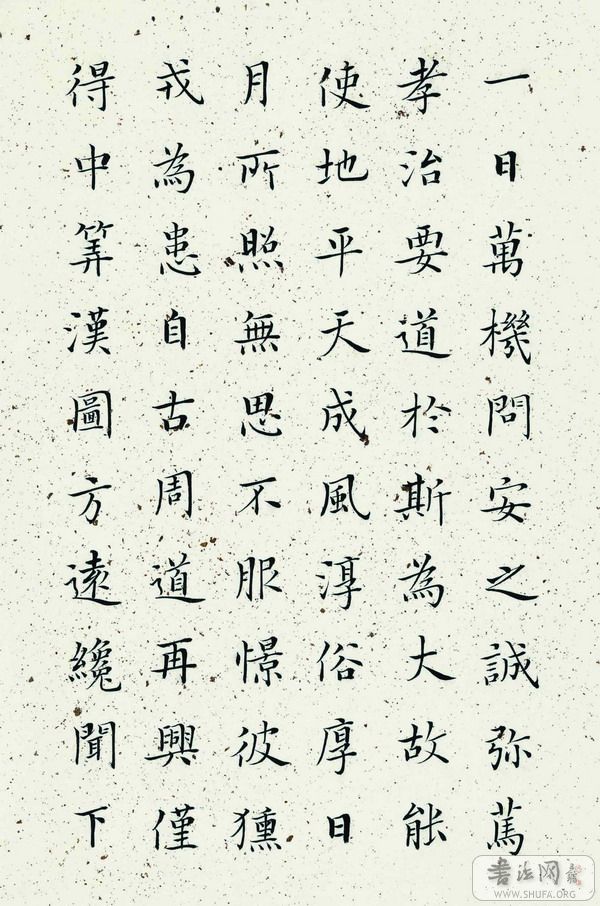 一日萬機問安之誠弥篤
孝治要道於斯為大故能
使地平天成風淳俗厚日
月所照無思不服憬彼獯
戎為患自古周道再興僅
得中筭漢圖方遠纔聞下
书法网
WWW.SHUFA.ORG